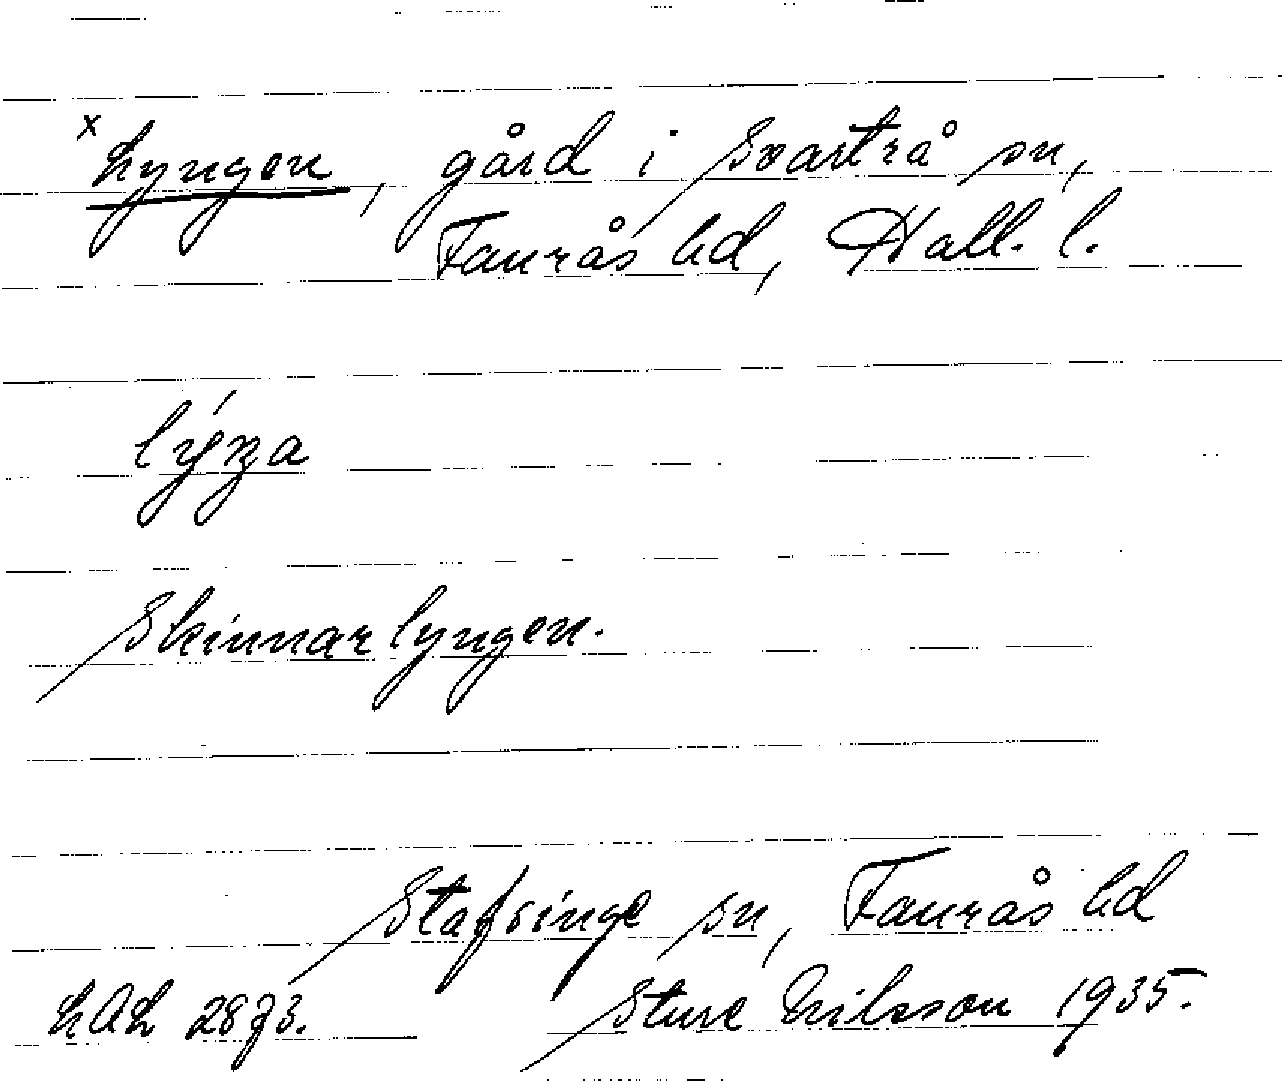 x Lyngen, gård i Svartrå sn,
Faurås hd, Hall. l.
lýŋa
Skinnarlyngen.
Stafsinge sn, Faurås hd
LAL 2873. Sture Nilsson 1935.